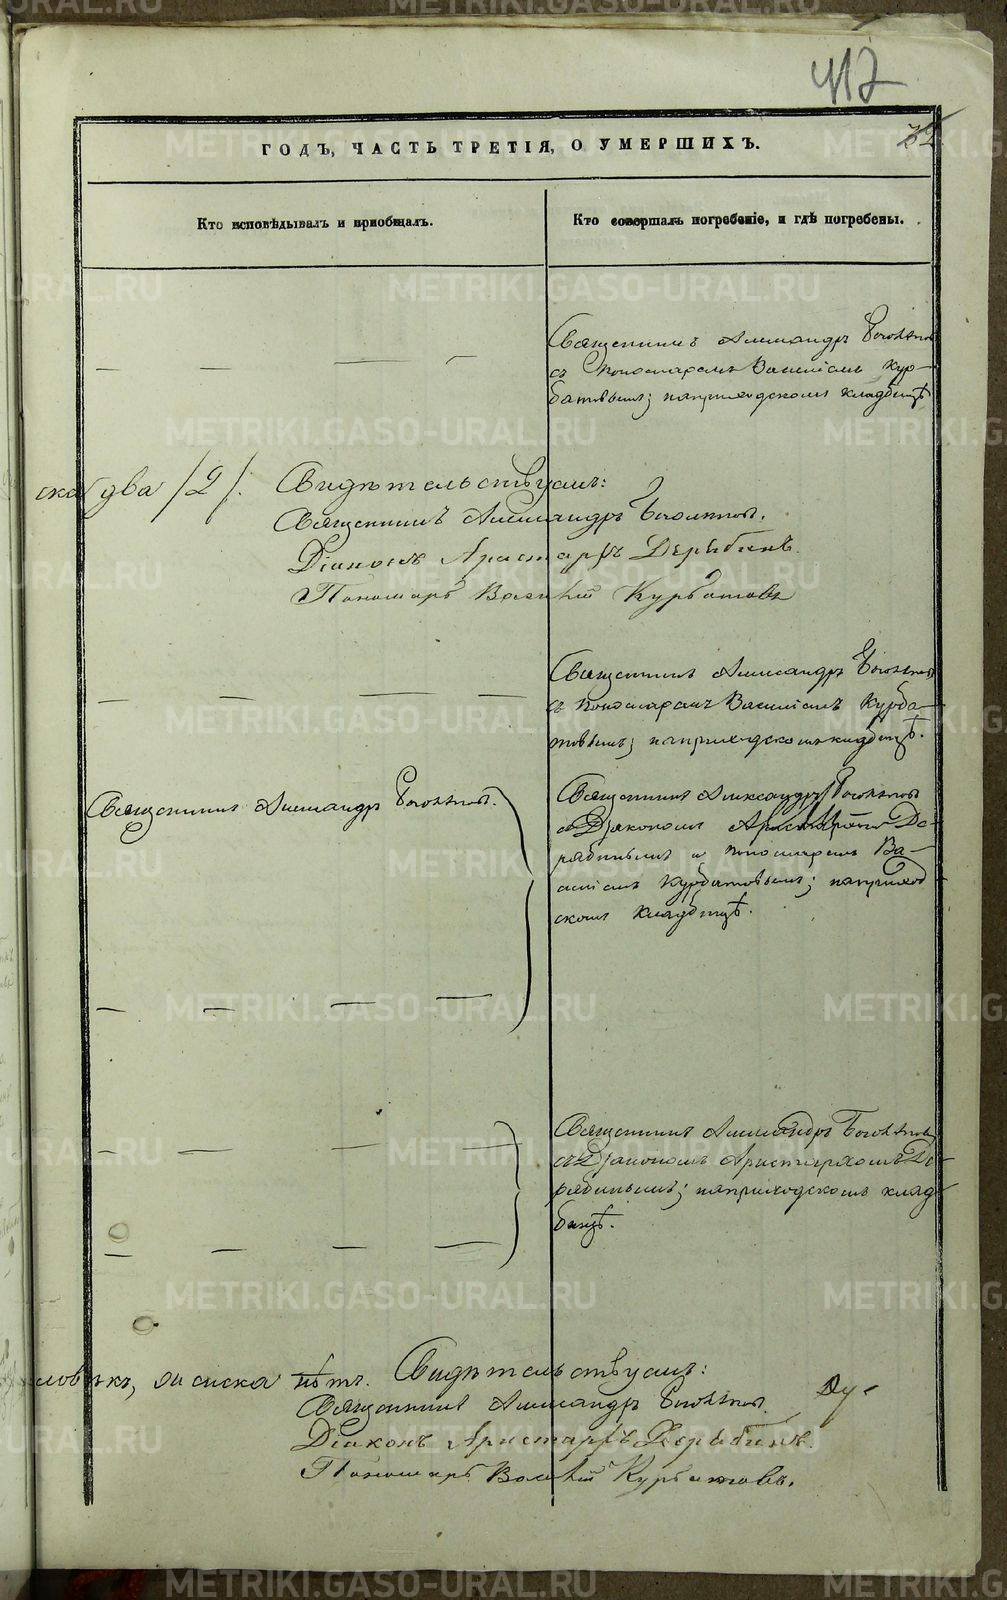 417
32
ГОДЪ, ЧАСТЬ ТРЕТІЯ, О УМЕРШИХЪ.
Кто исповѣдывалъ и пріобщалъ.
Кто совершалъ погребеніе, и гдѣ погребены.
Священникъ Александръ
съ Пономаремъ Василіемъ Кур-
батовымъ; на приходскомъ кладбищѣ
ска два /2/. Свидѣтельствуемъ:
Священникъ Александръ
Діаконъ Аристархъ Дерябинъ.
Пономарь Василій Курбатовъ
Священникъ Александръ
съ Пономаремъ Василіемъ Курба-
товымъ; на приходскомъ кладбищѣ.
Священникъ Александръ
Священникъ Александръ
съ Діакономъ Аристархомъ Де-
рябинымъ и Пономаремъ Ва-
силіемъ Курбатовымъ; на приход
скомъ кладбищѣ.
Священникъ Александръ
съ Діакономъ Аристархомъ Де-
рябинымъ; на приходскомъ клад-
бищѣ.
ловѣкъ, женска нѣтъ. Свидѣтельствуемъ:
Священникъ Александръ
Ду-
Діаконъ Аристархъ Дерябинъ.
Пономарь Василій Курбатовъ.
METRIKI.GASO-URAL.RU